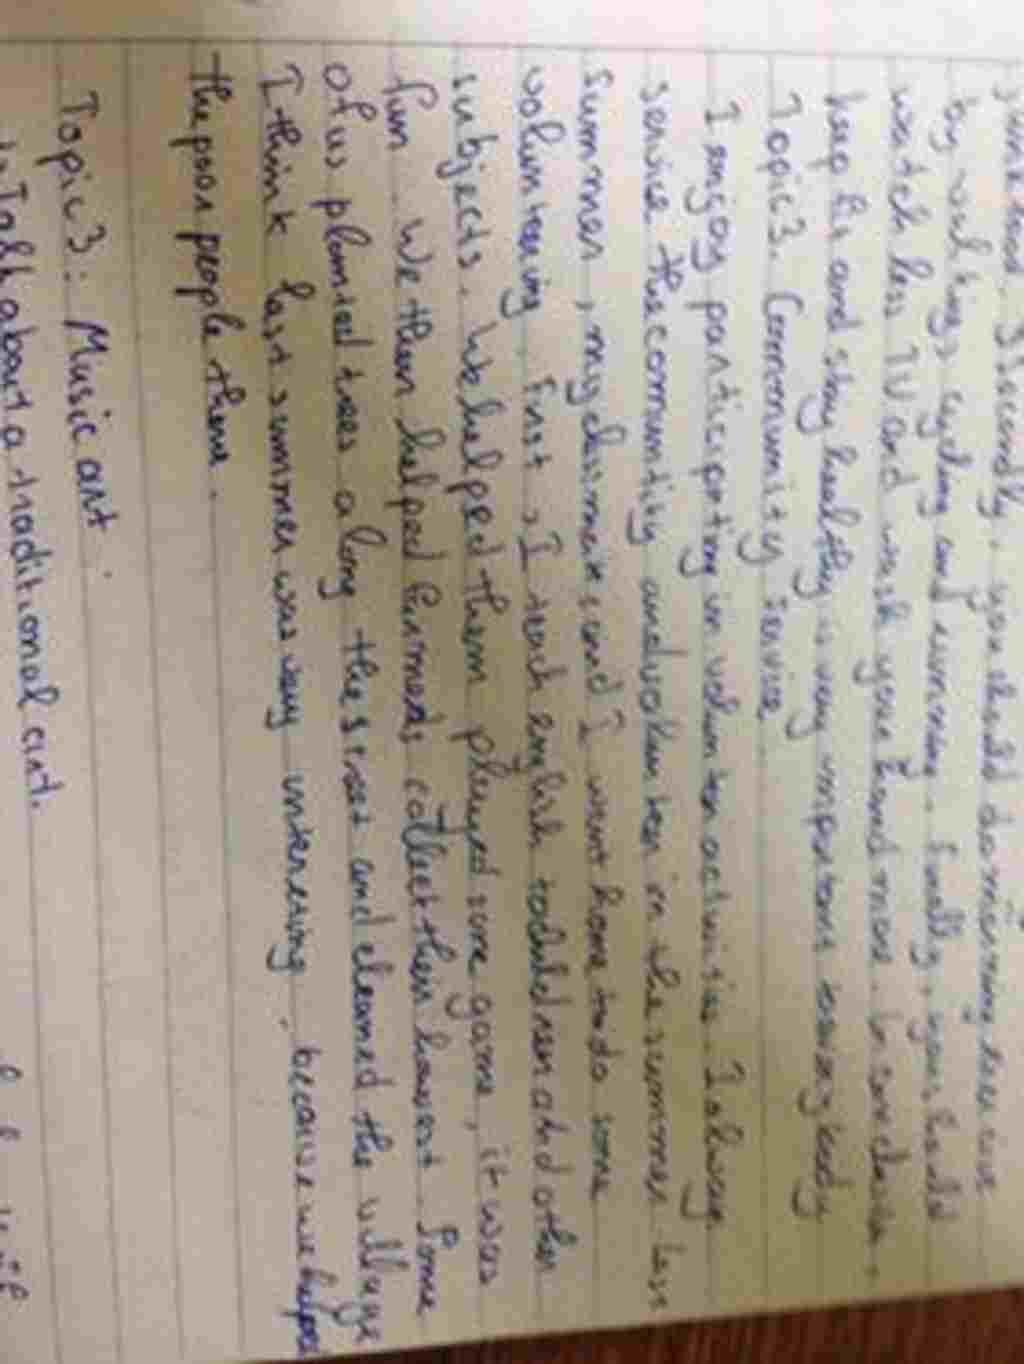 junk food. Secondly, you should do morning exercise
by walking, cycling and running. Finally, you should
watch less TV and wash your hand more. In conclusion,
keep fit and stay healthy is very important to everybody
Topic 3. Community service
I enjoy participating in volunteer activities. I always
service the community and volunteer in the summer. Last
summer, my classmates and I went home to do some
volunteering. First, I teach english to children and other
subjects. We helped them played some game, it was
fun. We then helped farmers collect their harvest. Some
of us planted trees along the street and cleaned the village
I think last summer was very interesing. because we helped
the poor people there.
Topic 3: Music art.
Talk about a traditional art.